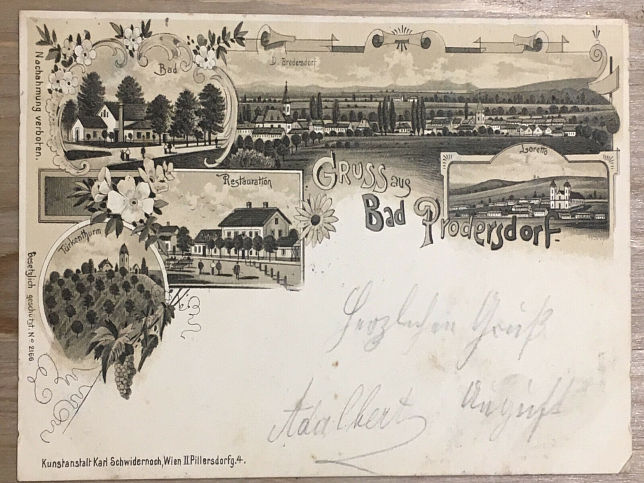 Bad
D. Brodersdorf
Loretto
Restauration
Gruss aus
Bad Prodersdorf.
Türkenthurm
Nachahmung verboten.
Gesetzlich geschützt. No 2166
Herzlichen Gruß
Adalbert August
Kunstanstalt Karl Schwidernoch, Wien II. Pillersdorfg. 4.